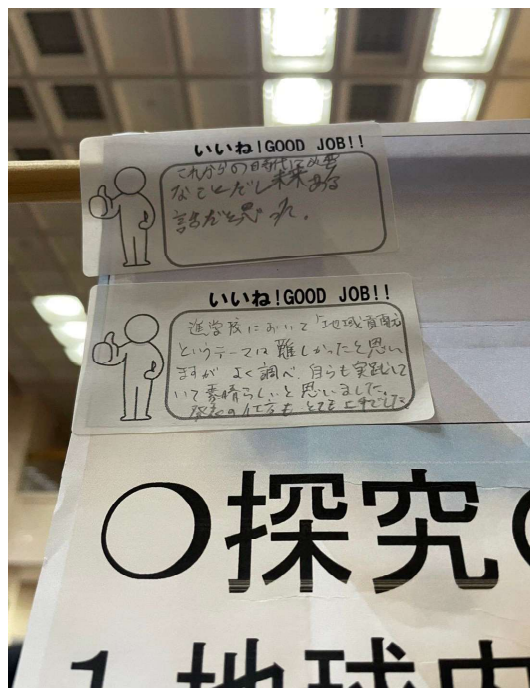 いいね!GOOD JOB!!
これからの時代に必要
なことだし未来ある
話だと思った。
いいね!GOOD JOB!!
進学校において「地域貢献」
というテーマは難しかったと思い
ますが よく調べ、自らも実践して
いて素晴らしいと思いました。
発表の仕方も とても上手でした
〇探究
1 地球内